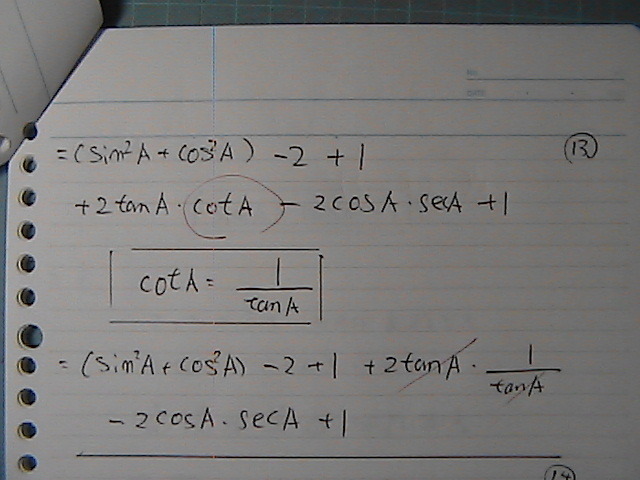 = (sin²A + cos²A) - 2 + 1 ⑬
+ 2 tanA · cotA - 2 cosA · secA + 1
cotA = 1/tanA
= (sin²A + cos²A) - 2 + 1 + 2 tanA · 1/tanA
- 2 cosA · secA + 1